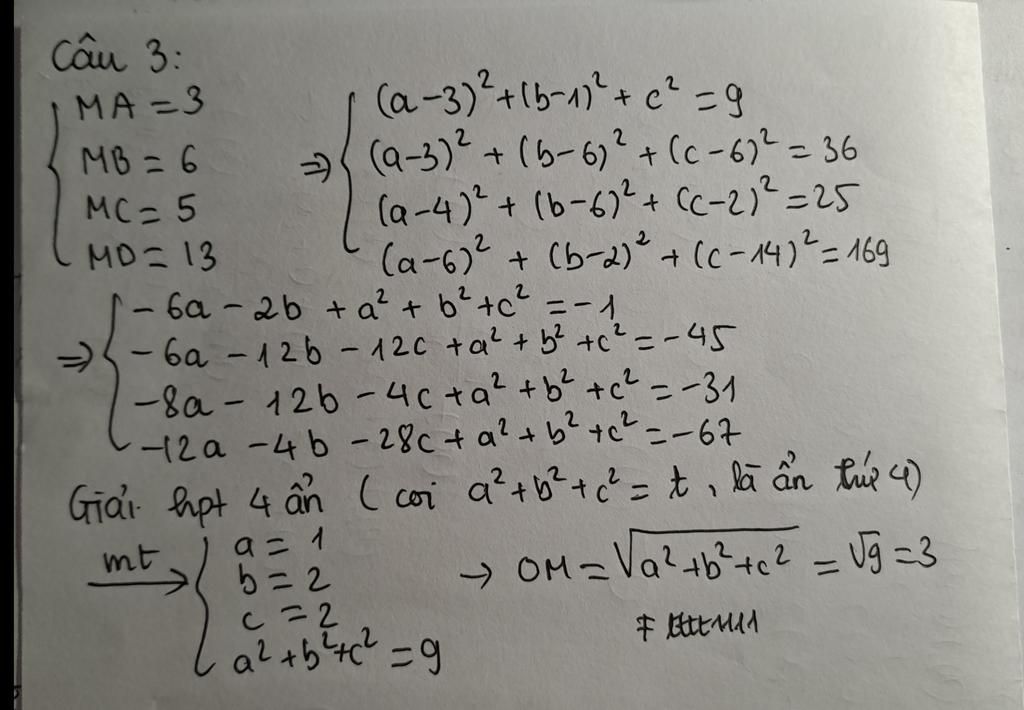 Câu 3:
MA = 3
MB = 6
MC = 5
MD = 13
⇒ (a-3)² + (b-1)² + c² = 9
(a-3)² + (b-6)² + (c-6)² = 36
(a-4)² + (b-6)² + (c-2)² = 25
(a-6)² + (b-2)² + (c-14)² = 169
⇒ -6a - 2b + a² + b² + c² = -1
-6a - 12b - 12c + a² + b² + c² = -45
-8a - 12b - 4c + a² + b² + c² = -31
-12a - 4b - 28c + a² + b² + c² = -67
Giải hpt 4 ẩn (coi a² + b² + c² = t, là ẩn thứ 4)
mt → a = 1
b = 2
c = 2
a² + b² + c² = 9
→ OM = √(a² + b² + c²) = √9 = 3